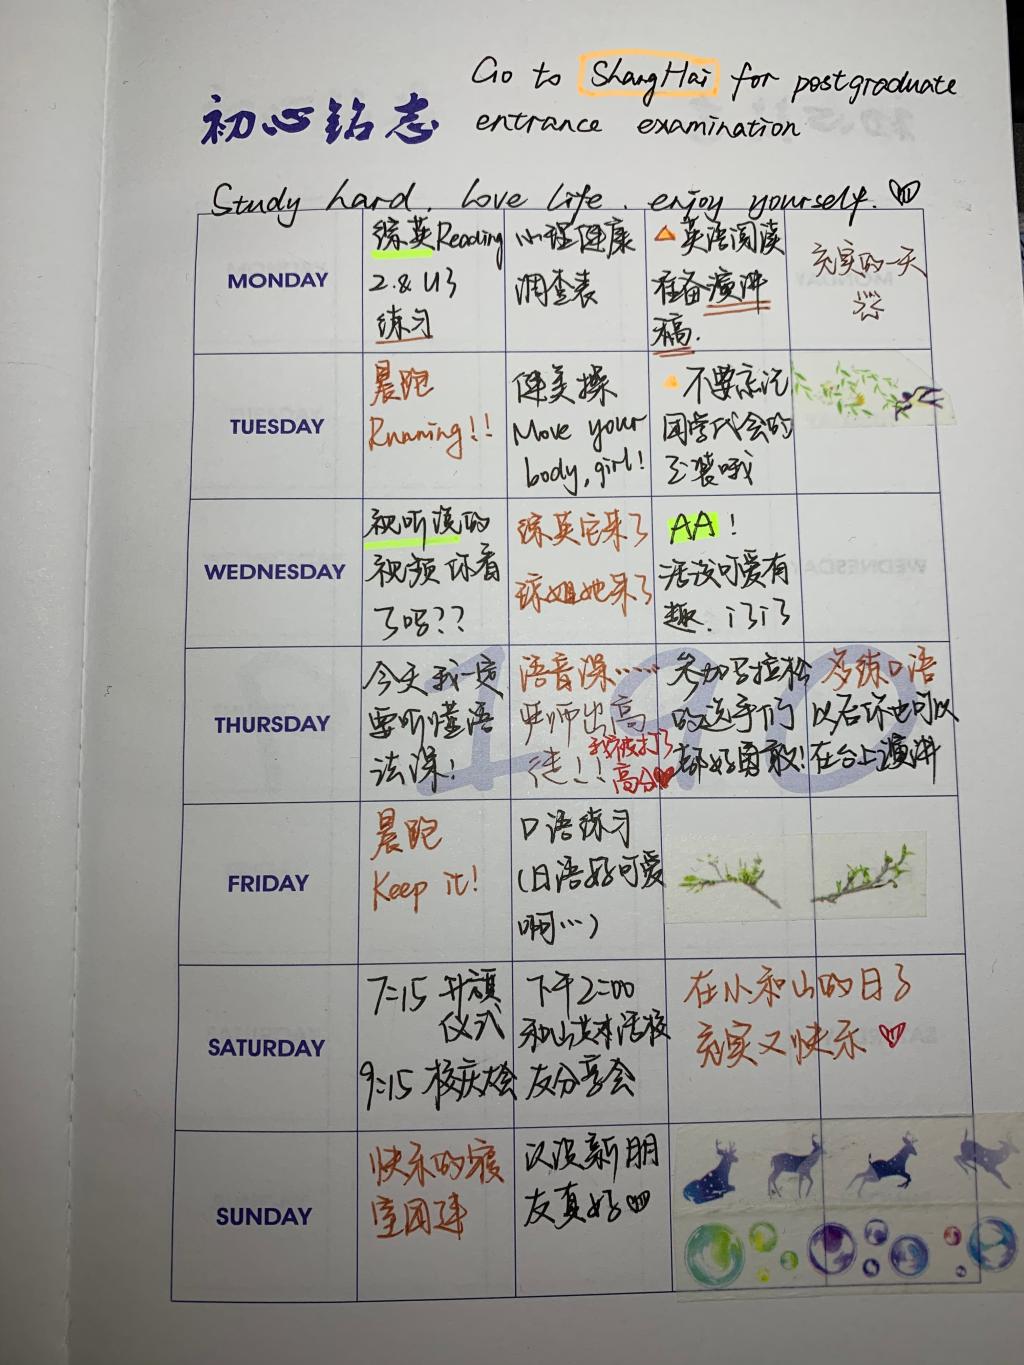 Go to ShangHai for postgraduate
初心铭志
entrance examination
Study hard. Love life. enjoy yourself.
MONDAY
综英Reading
2.& U3
练习
心理健康
调查表
英语阅读
准备演讲
稿.
充实的一天
TUESDAY
晨跑
Running!!
健美操
Move your
body, girl!
不要忘记
团学代会的
正装哦
WEDNESDAY
视听说的
视频你看
了吗??
综英它来了
琼姐她来了
AA!
活泼可爱有
趣.
THURSDAY
今天我一定
要听懂语
法课!
语音课……
严师出高
徒!!
我被打了
高分
参加马拉松
的选手们
都好勇敢!
多练口语
以后你也可以
在台上演讲
FRIDAY
晨跑
Keep it!
口语练习
(日语好可爱
啊…)
SATURDAY
7:15 升旗
仪式
9:15 校庆大会
下午2:00
和山
友分享会
在小和山的日子
充实又快乐
SUNDAY
快乐的寝
室团建
认识新朋
友真好